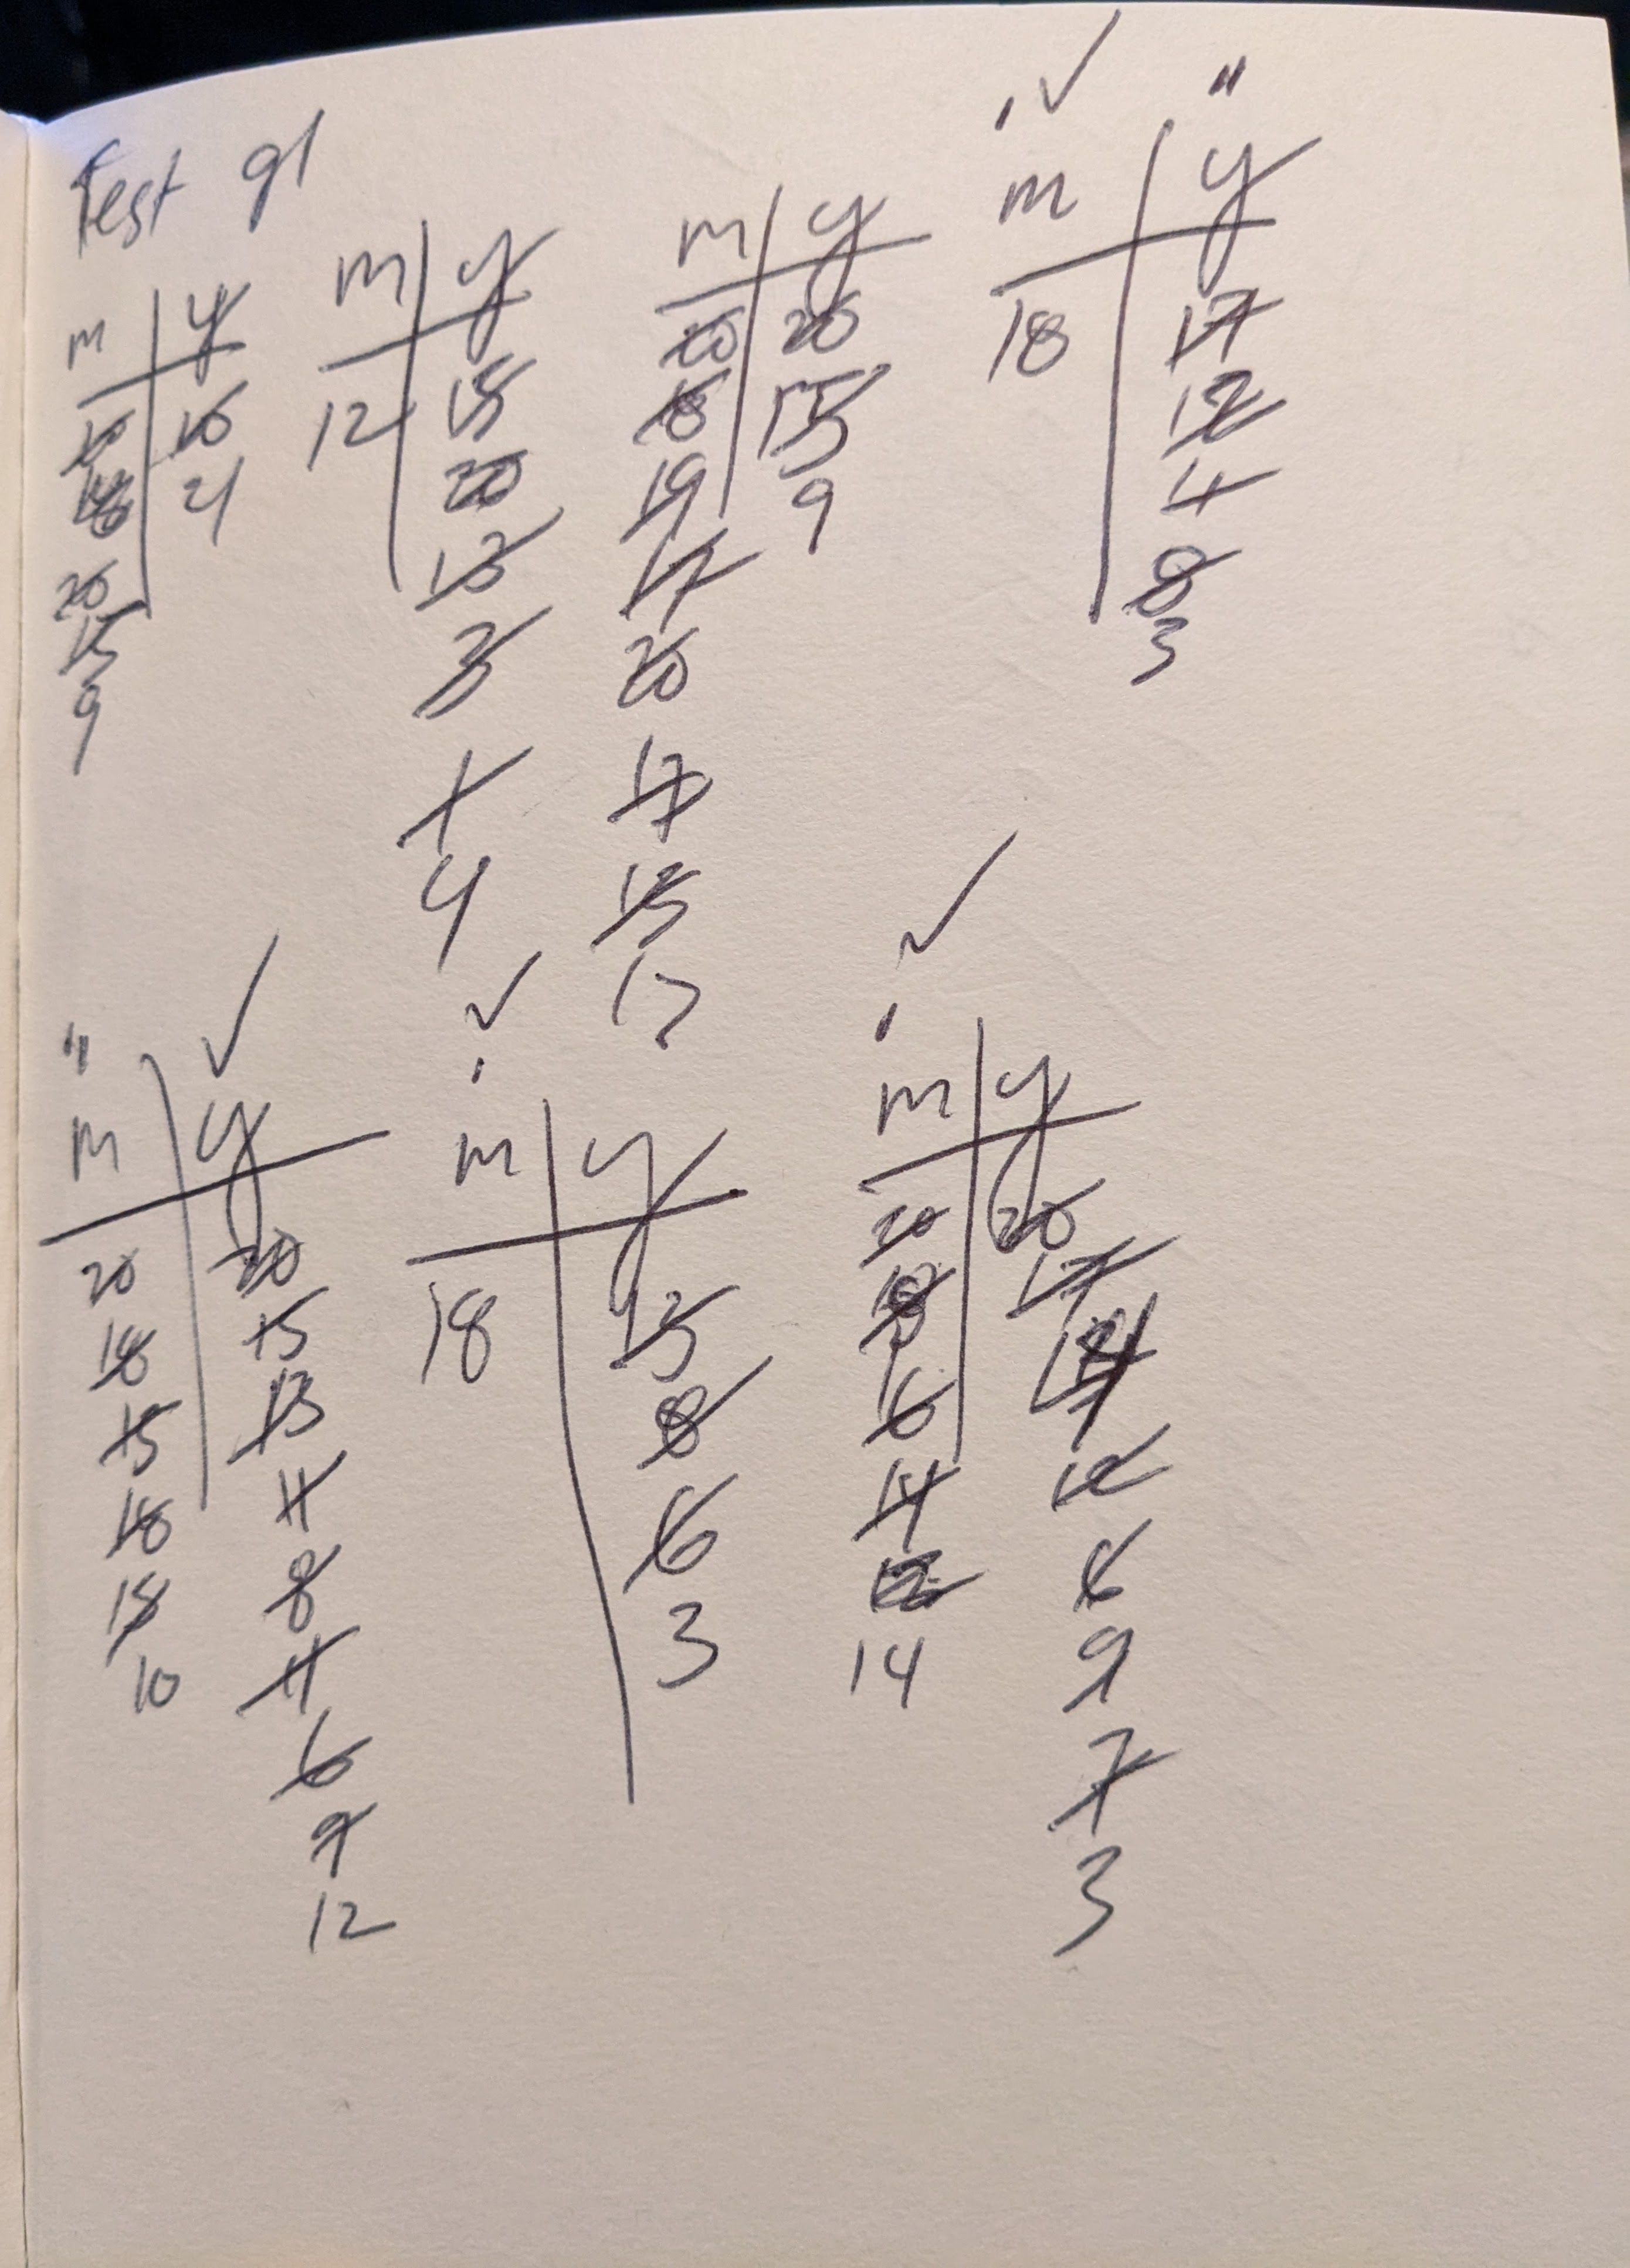 Test g1
m | y
21
20
15
9
m | y
12
15
20
10
3
1
4
m | y
20 20
18 15
19 9
17
20
17
15
17
m | y
18 17
12
4
8
3
m | y
20 20
18 15
15 13
18 11
15 8
10 11
6
9
12
m | y
18 15
8
6
3
m | y
20 20
17
16
14 12
12
14 9
7
3